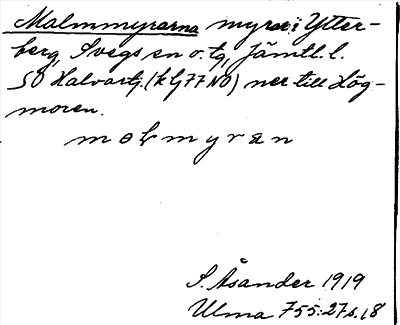 Malmmyrarna myrar i Ytter-
berg, Svegs sn o. tg, Jämtl. l.
SO Halvartj. (k lj 77 NO) ner till Låg-
moren.
mɵlmyran
S. Åsander 1919
Ulma 755:27 s. 18